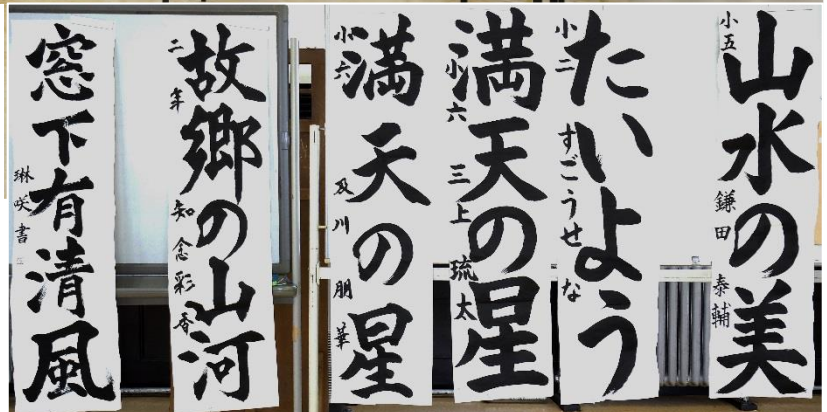 山水の美
小五 鎌田 泰輔
たいよう
小二 すごうせな
満天の星
小六 三上 琉太
満天の星
小六 及川 朋華
故郷の山河
二年 知念彩香
窓下有清風
琳咲書